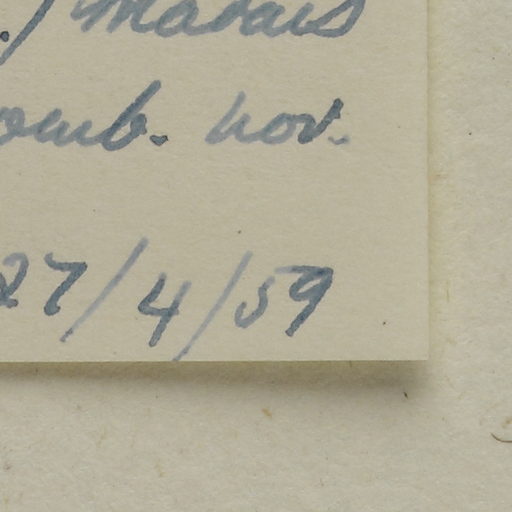 .) Madais
omb. nov.
27/4/59